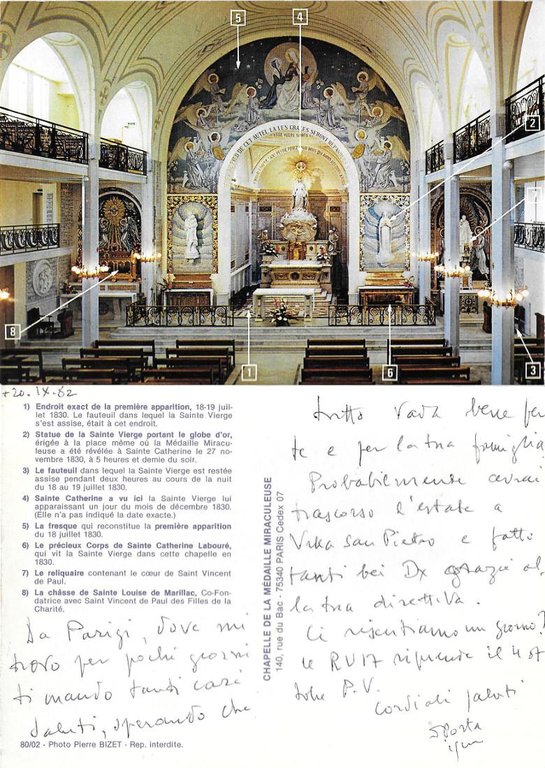 5
4
2
7
8
1
6
3
DE CET AUTEL LES GRÂCES SERONT
+20.IX.82
1) Endroit exact de la première apparition, 18-19 juil-
let 1830. Le fauteuil dans lequel la Sainte Vierge
s'est assise, était à cet endroit.
2) Statue de la Sainte Vierge portant le globe d'or,
érigée à la place même où la Médaille Miracu-
leuse a été révélée à Sainte Catherine le 27 no-
vembre 1830, à 5 heures et demie du soir.
3) Le fauteuil dans lequel la Sainte Vierge est restée
assise pendant deux heures au cours de la nuit
du 18 au 19 juillet 1830.
4) Sainte Catherine a vu ici la Sainte Vierge lui
apparaissant un jour du mois de décembre 1830.
(Elle n'a pas indiqué la date exacte.)
5) La fresque qui reconstitue la première apparition
du 18 juillet 1830.
6) Le précieux Corps de Sainte Catherine Labouré,
qui vit la Sainte Vierge dans cette chapelle en
1830.
7) Le reliquaire contenant le cœur de Saint Vincent
de Paul.
8) La châsse de Sainte Louise de Marillac, Co-Fon-
datrice avec Saint Vincent de Paul des Filles de la
Charité.
Da Parigi, dove mi
trovo per pochi giorni
ti mando tanti cari
saluti, sperando che
80/02 - Photo Pierre BIZET - Rep. interdite.
CHAPELLE DE LA MÉDAILLE MIRACULEUSE
140, rue du Bac - 75340 PARIS Cedex 07
tutto vada bene per
te e per la tua famiglia
Probabilmente avrai
trascorso l'estate a
Villa San Pietro e fatto
tanti bei Dx grazie al
la tua direttiva.
Ci risentiamo un giorno?
le RV17 riprende il 4 ot
tobre P.V.
Cordiali saluti